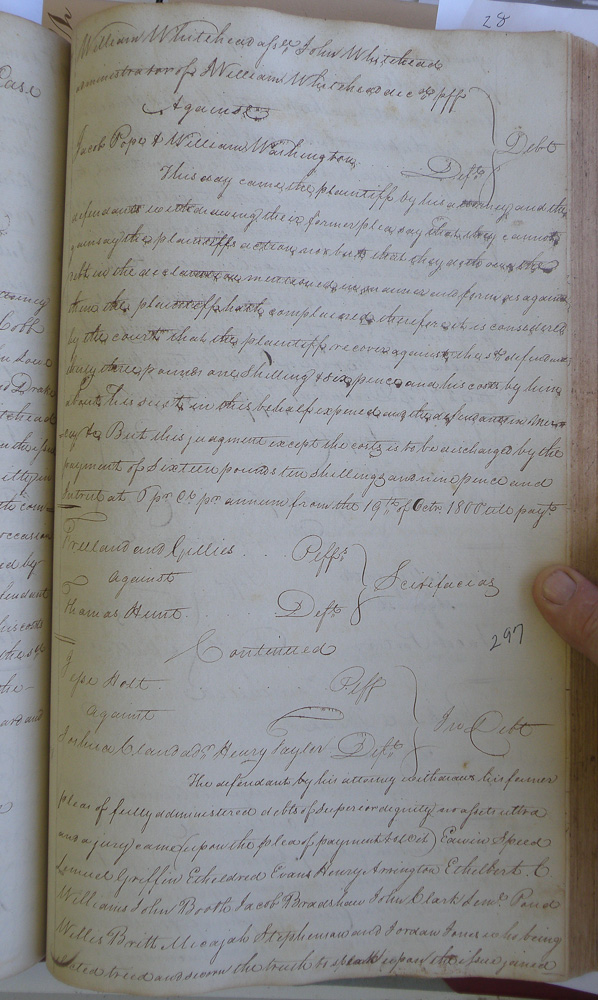 28
William Whitehead assee John Whitehead
administrator of William Whitehead decd plff
Against
Debt
Jacob Pope & William Washington Defts
This day came the plaintiff by his attorney and the
defendants withdrawing their former plea say that they cannot
gainsay the plaintiffs action nor but that they doth owe the
debt in the declaration mentioned in manner and form as against
them the plaintiff hath complained therefore it is considered
by the court that the plaintiff recover against the sd defendants
thirty three pounds one Shilling & six pence and his costs by him
about his suit in this behalf expended and the defendants in mer-
cy &c But this judgment except the costs is to be discharged by the
payment of Sixteen pounds ten shillings and nine pence and
Interest at 5 pr Ct pr annum from the 19th of Octr 1800 till payt.
Freeland and Gillies . . Plffs
against
Scirifacias
Thomas Hunt. Deft
Continued
297
Jesse Holt. Plff
against
In Debt
Joshua Claud adr Henry Taylor Deft
The defendant by his attorney withdraws his former
pleas of fully administered debts of Superior dignity no assets ultra
and a jury came upon the plea of payment to wit Edwin Speed
Samuel Griffin Etheldred Evans Henry Arrington Ethelbert C.
Williams John Booth Jacob Bradshaw John Clark Leml Pond
Willis Brith Micajah Stephenson and Jordan Jones who being
elected tried and sworn the truth to speak upon the Issue joined